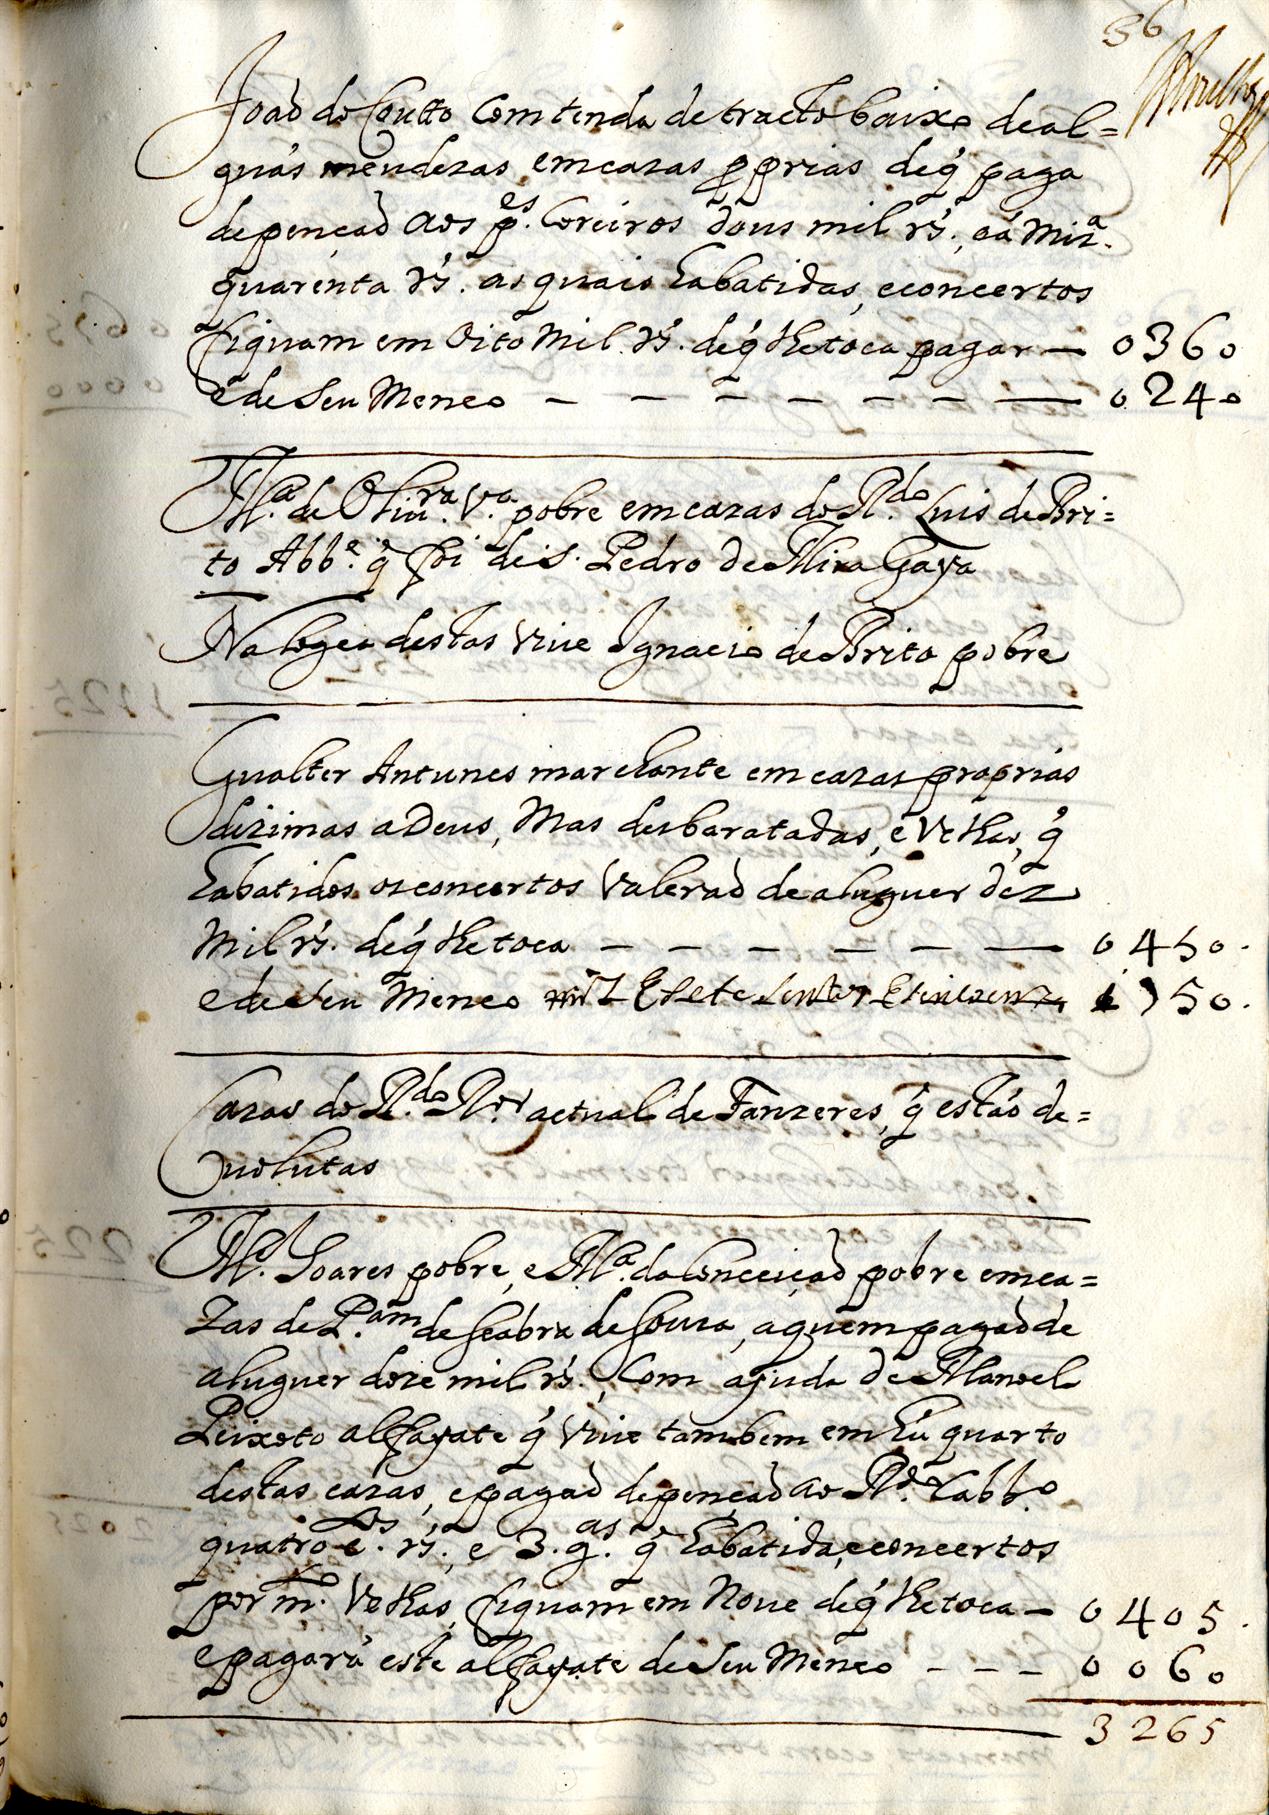 36
João do Coutto Com tenda de tracto baixo de al=
guás meudezas em cazas pprias de q̃ paga
de penção aos p.es Coreiros dous mil rs̃. e á Miz.a
quarenta rs̃. as quais habatidas, e concertos
fiquam em Oito Mil rs̃. de q̃ lhe toca pagar — 0360
e de seu Meneo — — — — — — — — 0240
M.a de Oliur.a V.a pobre em cazas do R.do Luis de Bri=
to Abb.e q̃ foi de S. Pedro de Miragaya
Na logea destas Viue Ignacio de Brito pobre
Gualter Antunes marchante em cazas proprias
dizimas a Deus, Mas desbaratadas, e Velhas, q̃
habatidos os concertos Valerão de aluguer dez
Mil rs̃. de q̃ lhe toca — — — — — — — 0450.
e de seu Meneo mil e sete sentos e sincoenta 1750.
Cazas do R.do R.or actual de Fanzeres, q̃ estão de=
uolutas
M.a Soares pobre, e M.a da Conceição pobre em ca=
zas de P.am de Seabra de Sousa, a quem pagão de
aluguer doze mil rs̃., Com ajuda de Manoel
Peixoto alfayate q̃ Viue tambem em hũ quarto
destas cazas, e pagão de penção ao R.do Cabb.o
quatro c.tos rs̃., e 3. g.as q̃ habatida, e concertos
por m.to Velhas, fiquam em Noue de q̃ lhe toca — 0405.
e pagará este alfayate de seu Meneo — — — 0060
3265